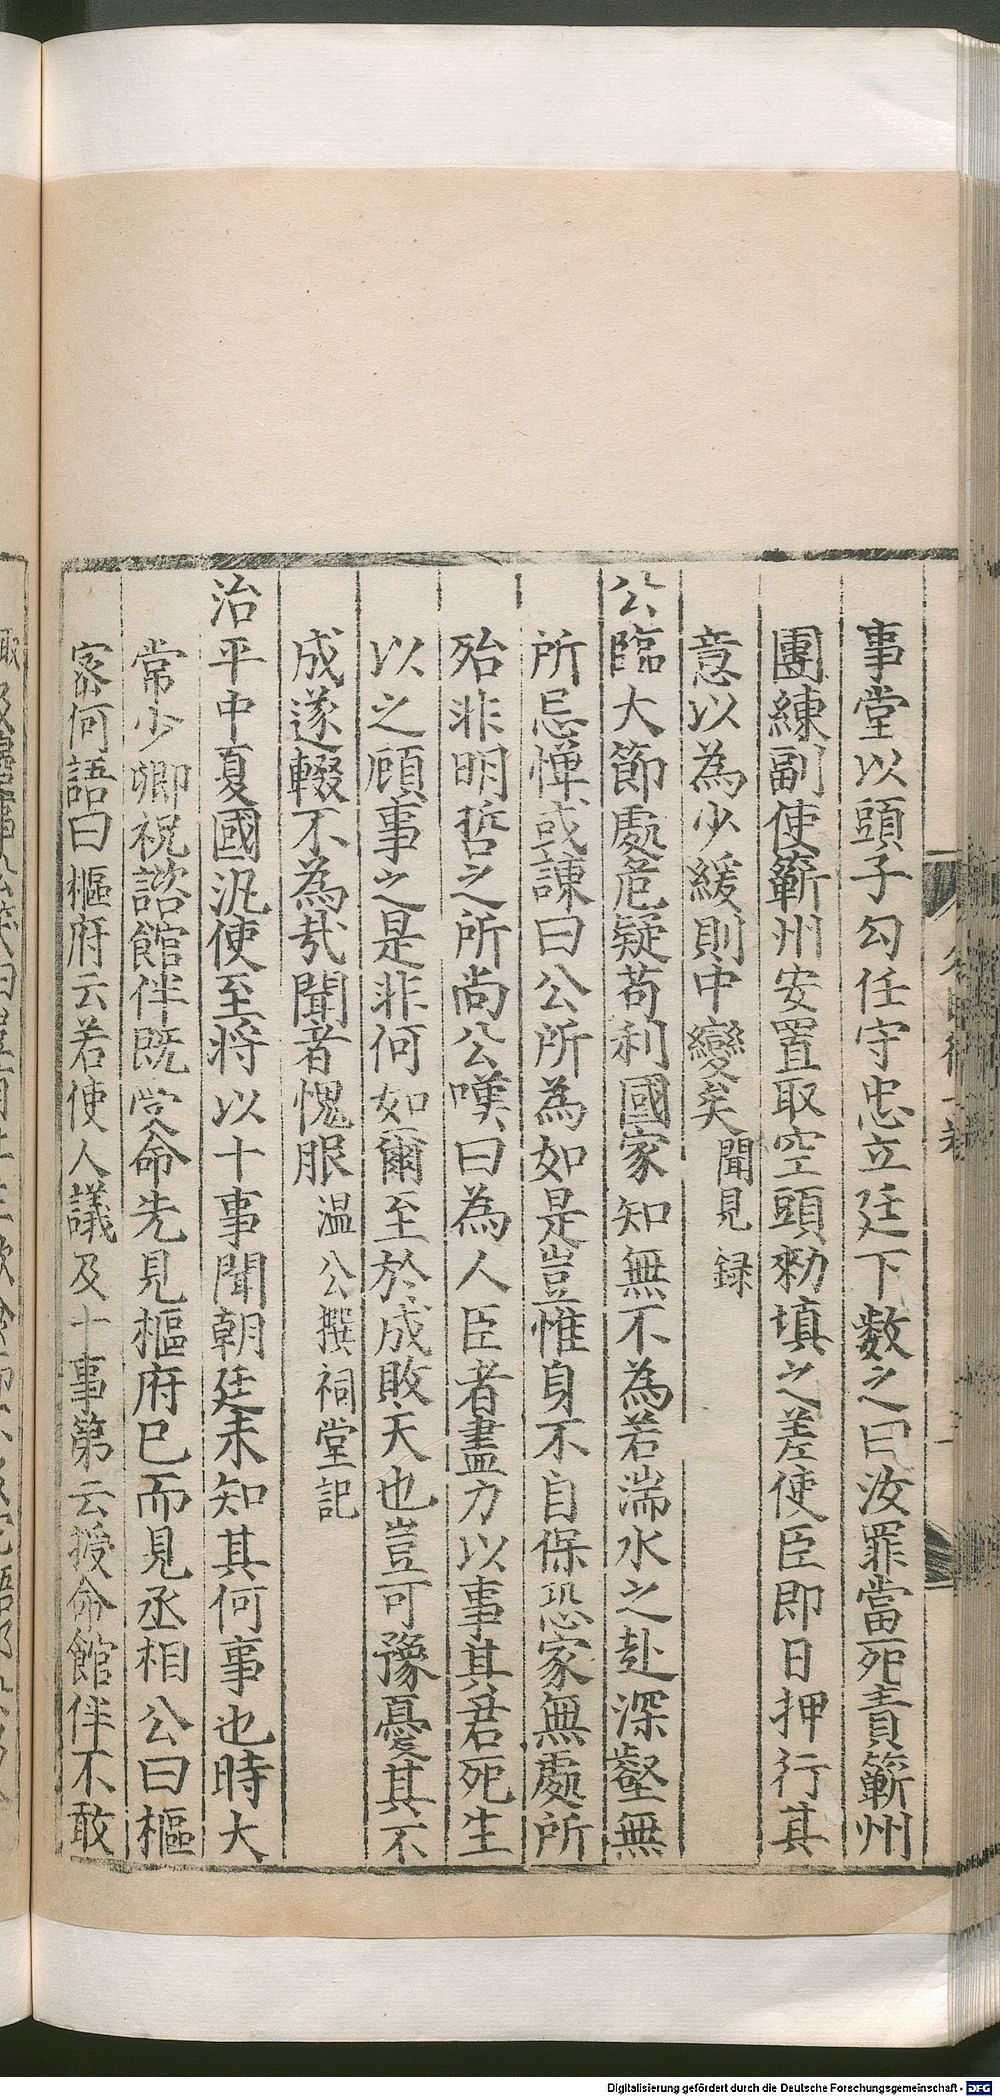 事堂以頭子勾任守忠立廷下數之曰汝罪當死責蘄州
團練副使蘄州安置取空頭勑填之差使臣即日押行其
意以為少緩則中變矣聞見録
公臨大節處危疑苟利國家知無不為若湍水之赴深壑無
所忌憚或諌曰公所為如是豈惟身不自保恐家無處所
殆非明哲之所尚公嘆曰為人臣者盡力以事其君死生
以之顧事之是非何如爾至於成敗天也豈可豫憂其不
成遂輟不為㦲聞者愧服温公撰祠堂記
治平中夏國汎使至將以十事聞朝廷未知其何事也時大
常少卿祝諮館伴既受命先見樞府已而見丞相公曰樞
密何語曰樞府云若使人議及十事第云授命館伴不敢
Digitalisierung gefördert durch die Deutsche Forschungsgemeinschaft - DFG